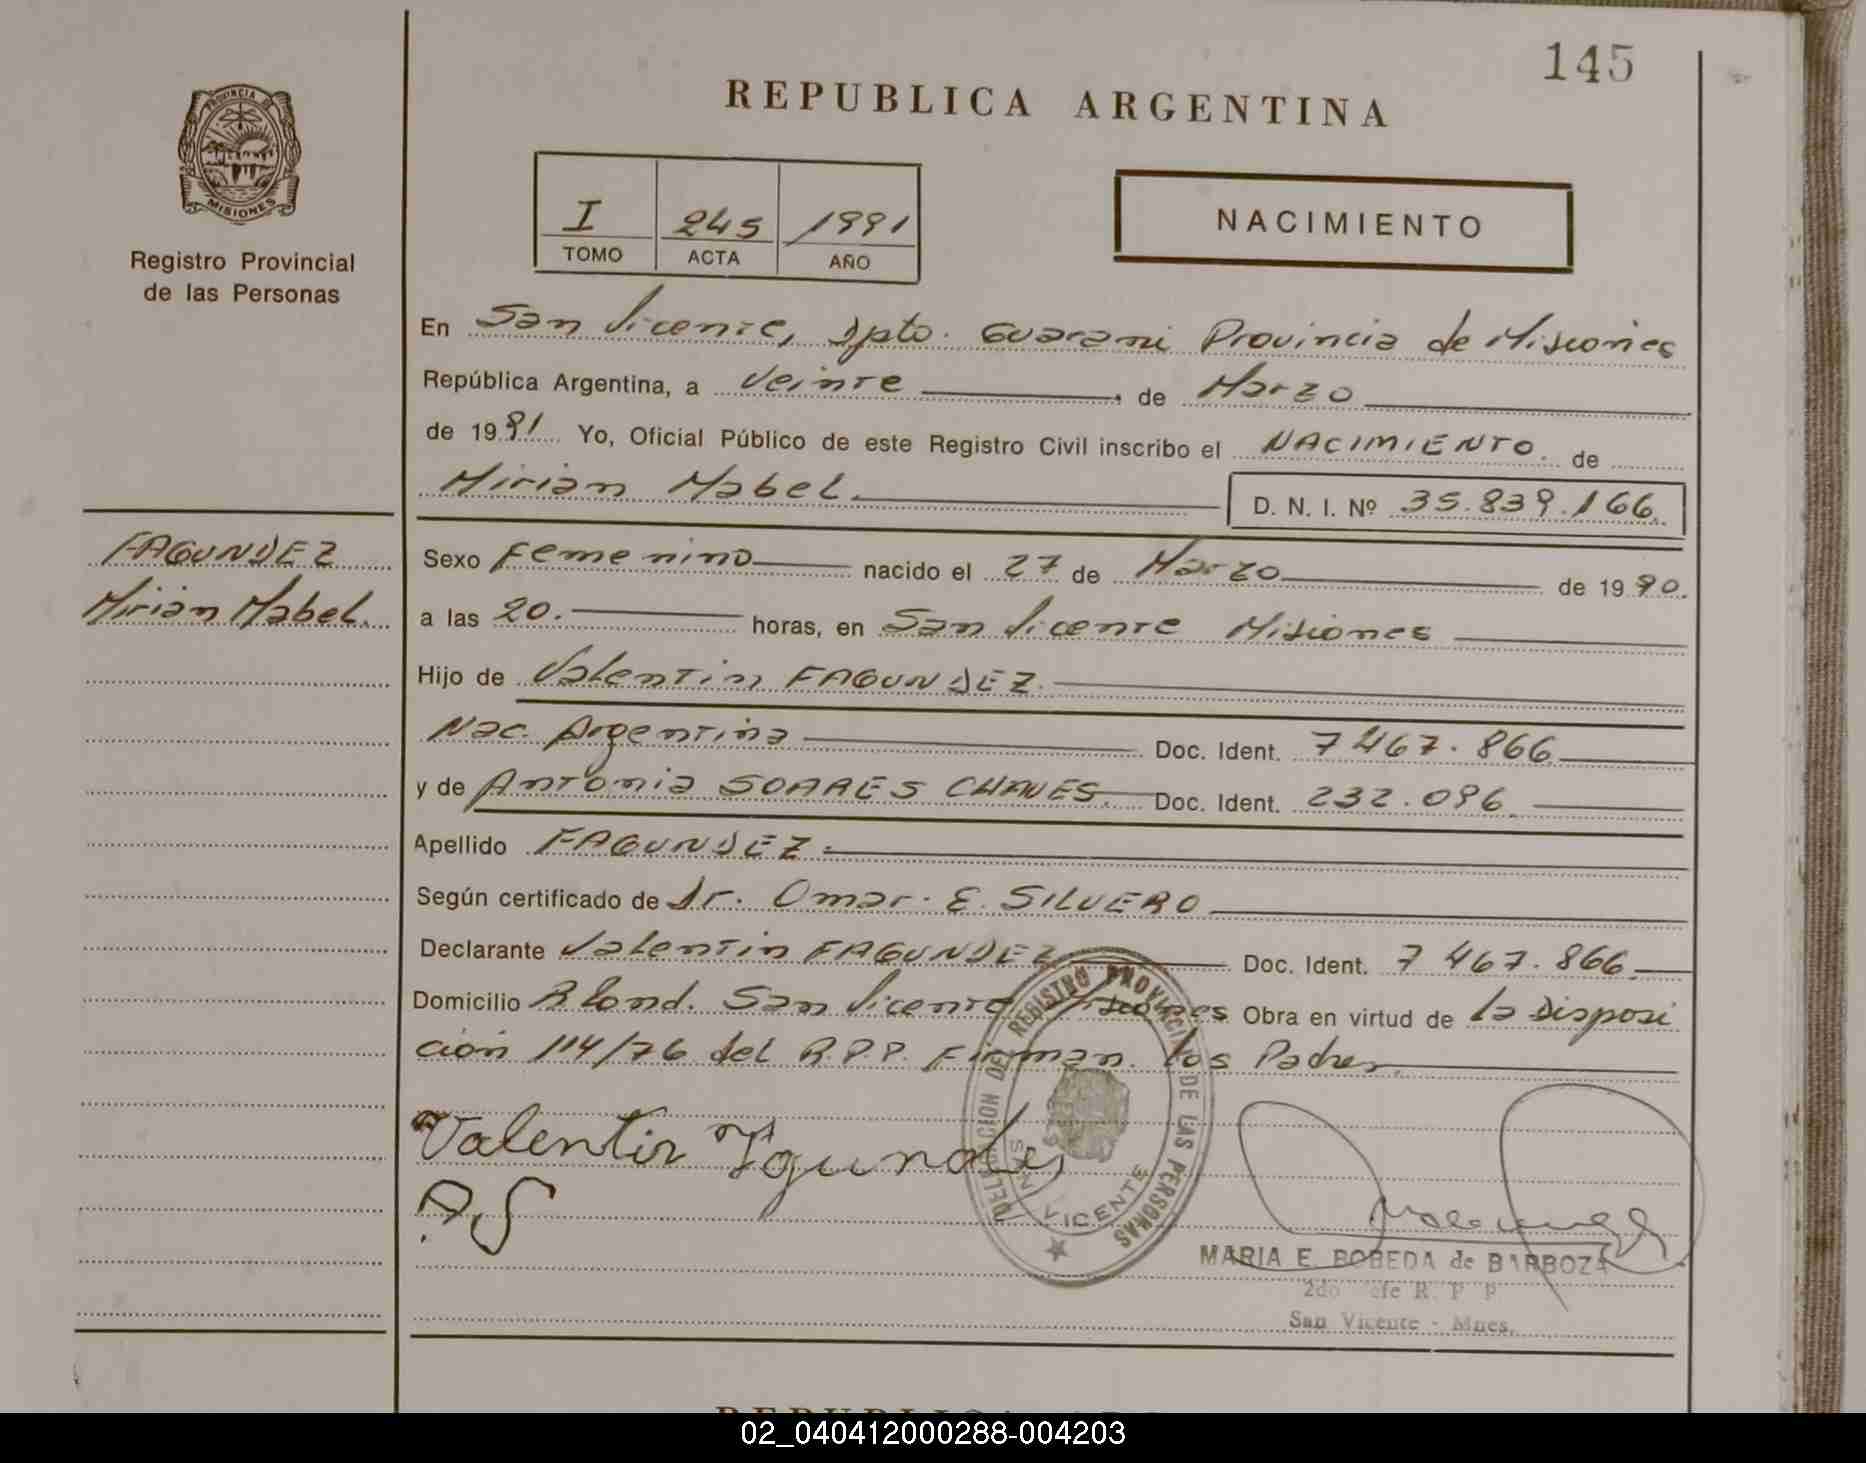 145
REPUBLICA ARGENTINA
PROVINCIA DE
MISIONES
Registro Provincial
de las Personas
I 245 1991
TOMO ACTA AÑO
NACIMIENTO
En San Vicente, Dpto. Guarani Provincia de Misiones
República Argentina, a Veinte de Marzo
de 1991 Yo, Oficial Público de este Registro Civil inscribo el NACIMIENTO. de
Mirian Mabel D. N. I. Nº 35.839.166.
FAGUNDEZ
Mirian Mabel.
Sexo Femenino nacido el 27 de Marzo de 1990.
a las 20. horas, en San Vicente Misiones
Hijo de Valentin FAGUNDEZ.
Nac. Argentina Doc. Ident. 7467.866
y de Antonia SOARES CHAVES. Doc. Ident. 232.096
Apellido FAGUNDEZ.
Según certificado de Dr. Omar. E. SILVERO
Declarante Valentin FAGUNDEZ Doc. Ident. 7 467.866
Domicilio San Vicente Misiones Obra en virtud de la Disposi
ción 114/76 del R.P.P. Firman. los Padres.
Valentin
A.S
DELEGACION DEL REGISTRO PROVINCIAL DE LAS PERSONAS
SAN VICENTE
MARIA E. BOBEDA de BARBOZA
2do Jefe R. P. P
San Vicente - Mnes.
02_040412000288-004203